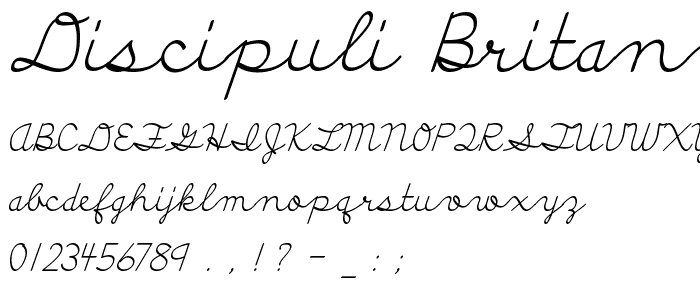 Discipuli Britan
ABCDEFGHIJKLMNOPQRSTUVWXY
abcdefghijklmnopqrstuvwxyz
0123456789 . , ! ? - _ : ;